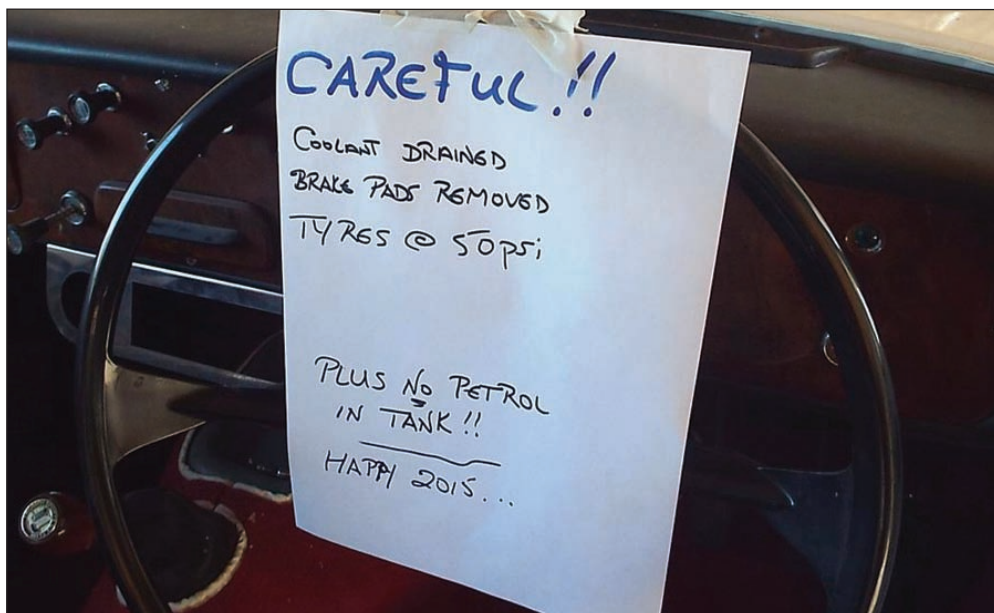 CAREFUL!!
COOLANT DRAINED
BRAKE PADS REMOVED
TYRES @ 50psi
PLUS NO PETROL
IN TANK!!
HAPPY 2015...